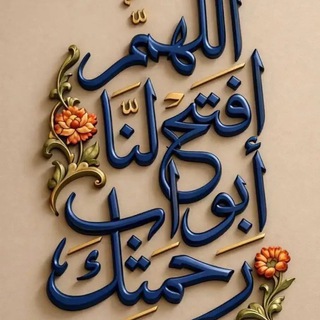 اللهم
افتح لنا
أبواب
رحمتك